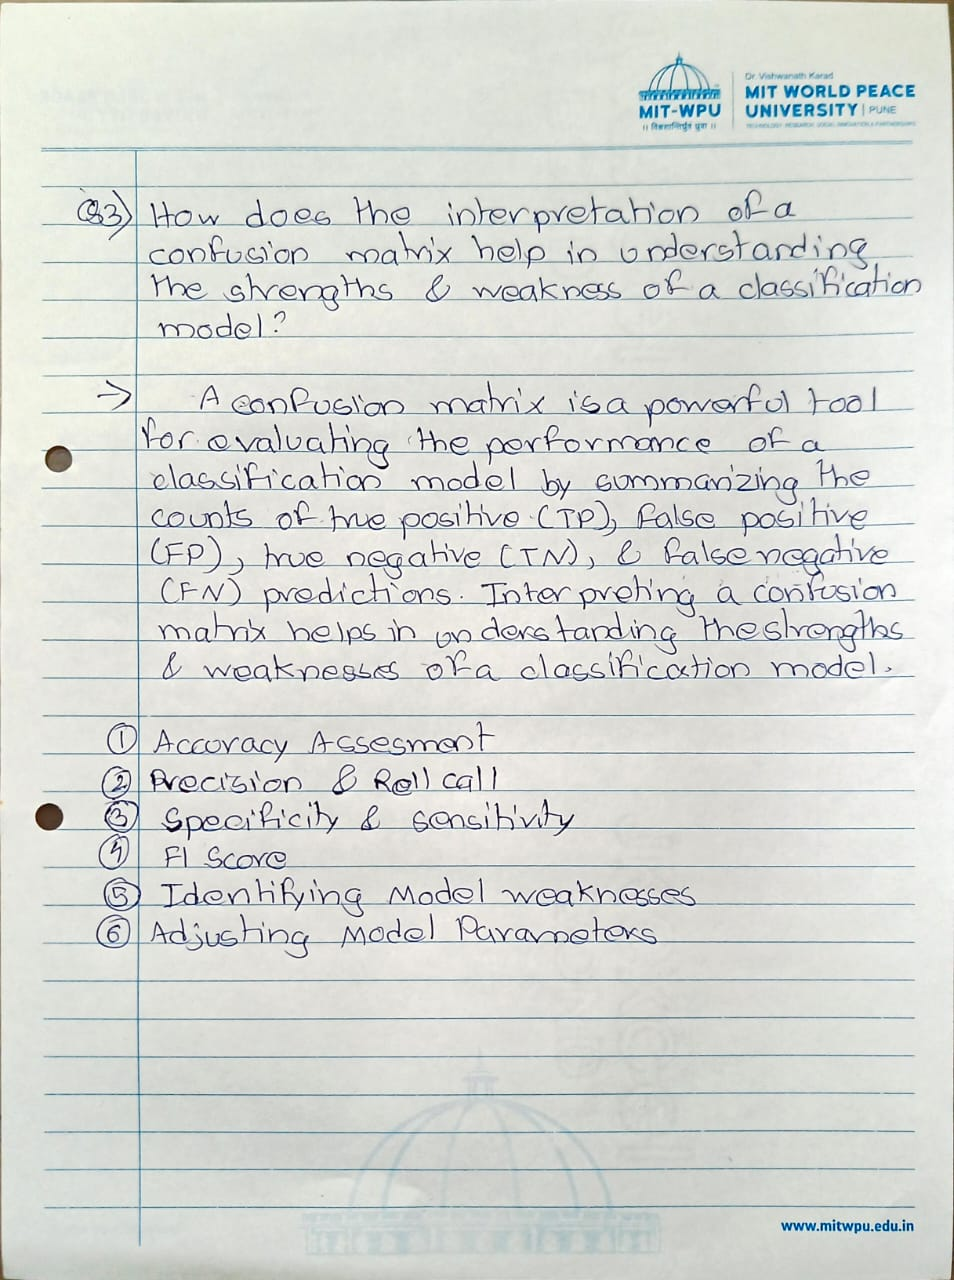 Dr. Vishwanath Karad
MIT WORLD PEACE
UNIVERSITY | PUNE
TECHNOLOGY, RESEARCH, SOCIAL INNOVATION & PARTNERSHIPS
MIT-WPU
॥ विश्वशान्तिर्ध्रुवं ध्रुवा ॥
Q3) How does the interpretation of a
confusion matrix help in understanding
the strengths & weakness of a classification
model?
→ A confusion matrix is a powerful tool
for evaluating the performance of a
classification model by summarizing the
counts of true positive (TP), false positive
(FP), true negative (TN), & false negative
(FN) predictions. Interpreting a confusion
matrix helps in understanding the strengths
& weaknesses of a classification model.
① Accuracy Assesment
② Precision & Roll call
③ Specificity & sensitivity
④ F1 Score
⑤ Identifying Model weaknesses
⑥ Adjusting Model Parameters
www.mitwpu.edu.in